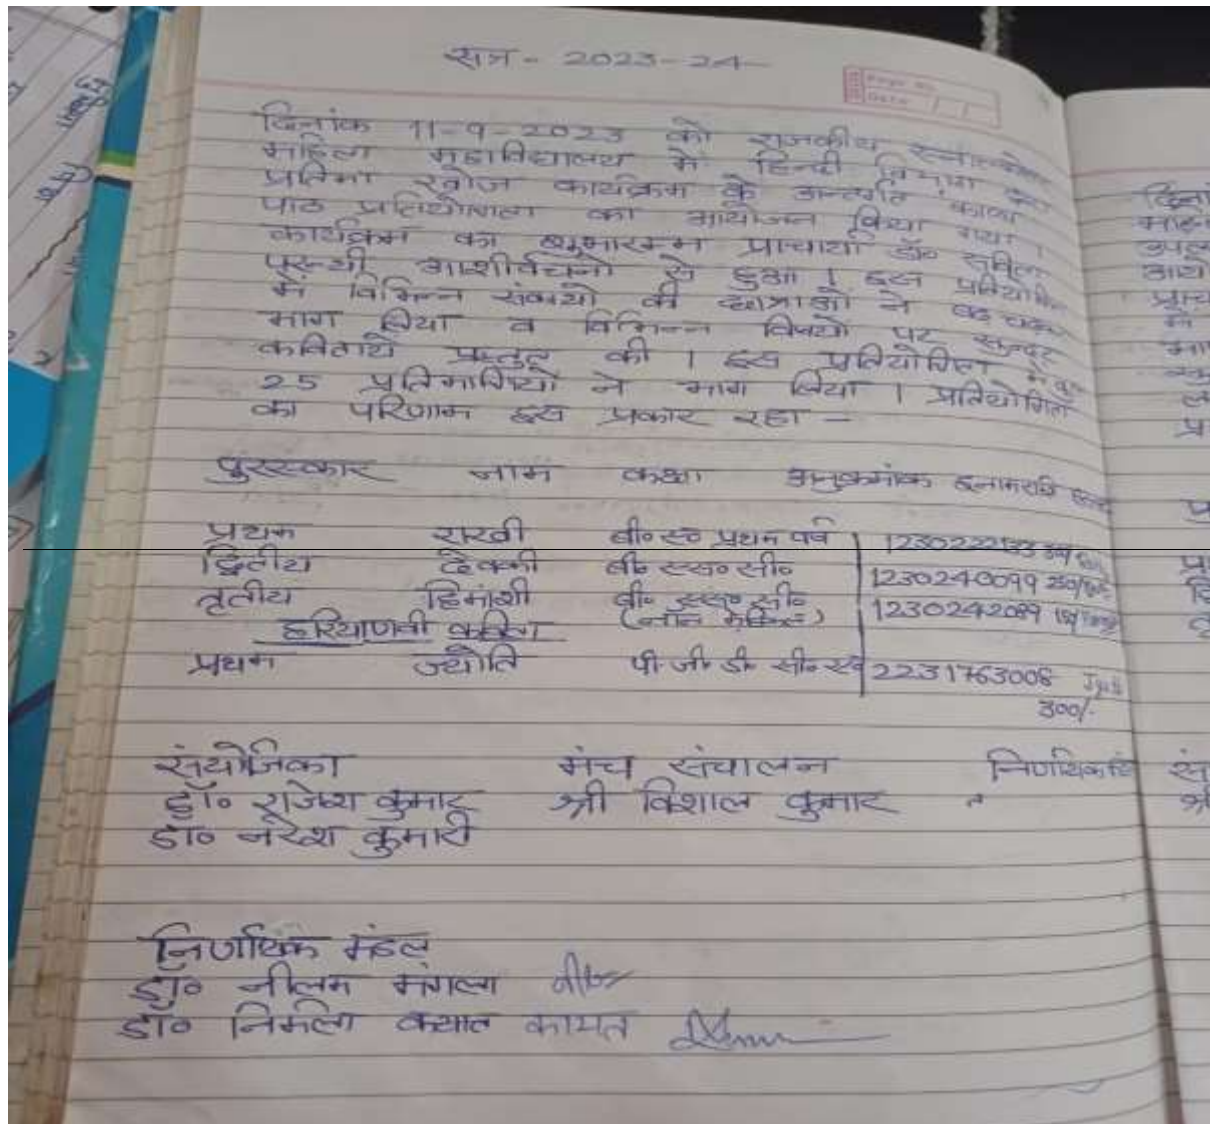 सत्र - 2023-24
Page No.
Date / /
दिनांक 11-9-2023 को राजकीय स्नातकोत्तर
महिला महाविद्यालय में हिन्दी विभाग द्वारा
प्रतिभा खोज कार्यक्रम के अन्तर्गत काव्य
पाठ प्रतियोगिता का आयोजन किया गया ।
कार्यक्रम का शुभारम्भ प्राचार्या डॉ०
आशीर्वचनों से हुआ । इस प्रतियोगिता
में विभिन्न संकायों की छात्राओं ने बढ़ चढ़कर
भाग लिया व विभिन्न विषयों पर सुन्दर
कवितायें प्रस्तुत की । इस प्रतियोगिता में कुल
25 प्रतिभागियों ने भाग लिया । प्रतियोगिता
का परिणाम इस प्रकार रहा -
पुरस्कार नाम कक्षा अनुक्रमांक इनामराशि
प्रथम राखी बी० ए० प्रथम वर्ष 1230222133
द्वितीय देवकी बी० एस० सी० 1230240099 250/-
तृतीय हिमांशी बी० एस० सी० 1230242089
हरियाणवी कविता (नॉन मेडिकल)
प्रथम ज्योति पी० जी० डी० सी० ए० 2231763008 Jyoti
300/-
संयोजिका मंच संचालन
डॉ० राजेश कुमार श्री विशाल कुमार
डॉ० नरेश कुमारी
निर्णायक मंडल
डॉ० नीलम मंगला
डॉ० निर्मला कायत